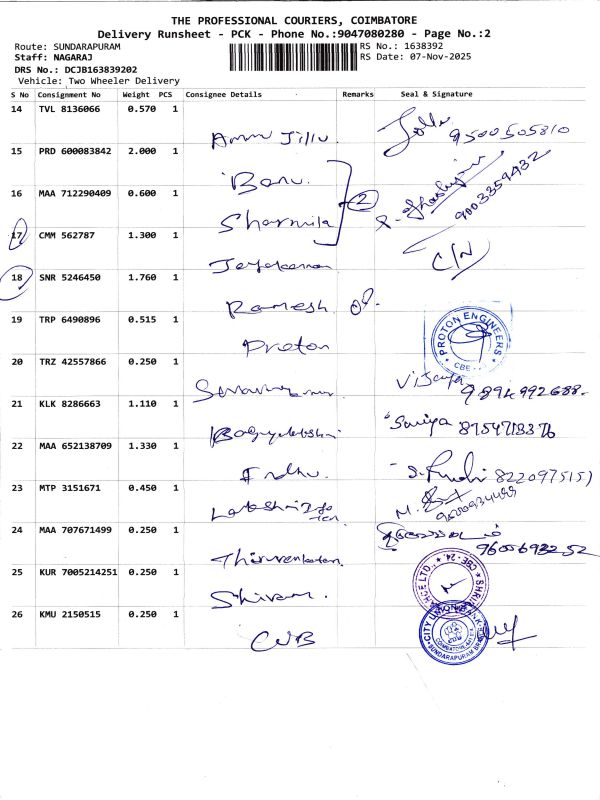 THE PROFESSIONAL COURIERS, COIMBATORE
Delivery Runsheet - PCK - Phone No.:9047080280 - Page No.:2
Route: SUNDARAPURAM
RS No.: 1638392
Staff: NAGARAJ
RS Date: 07-Nov-2025
DRS No.: DCJB163839202
Vehicle: Two Wheeler Delivery
S No Consignment No Weight PCS Consignee Details Remarks Seal & Signature
14 TVL 8136066 0.570 1
9500505810
15 PRD 600083842 2.000 1 Banu.
2
9003359432
16 MAA 712290409 0.600 1 Sharmila
17 CMM 562787 1.300 1
C/N
18 SNR 5246450 1.760 1 Ramesh
19 TRP 6490896 0.515 1 Proton
PROTON ENGINEERS
CBE
20 TRZ 42557866 0.250 1
Vijaya
9894992688.
21 KLK 8286663 1.110 1
Suriya 8754718376
22 MAA 652138709 1.330 1
8220975151
23 MTP 3151671 0.450 1
24 MAA 707671499 0.250 1
9600693252
25 KUR 7005214251 0.250 1
26 KMU 2150515 0.250 1 CUB
CITY UNION BANK
SUNDARAPURAM